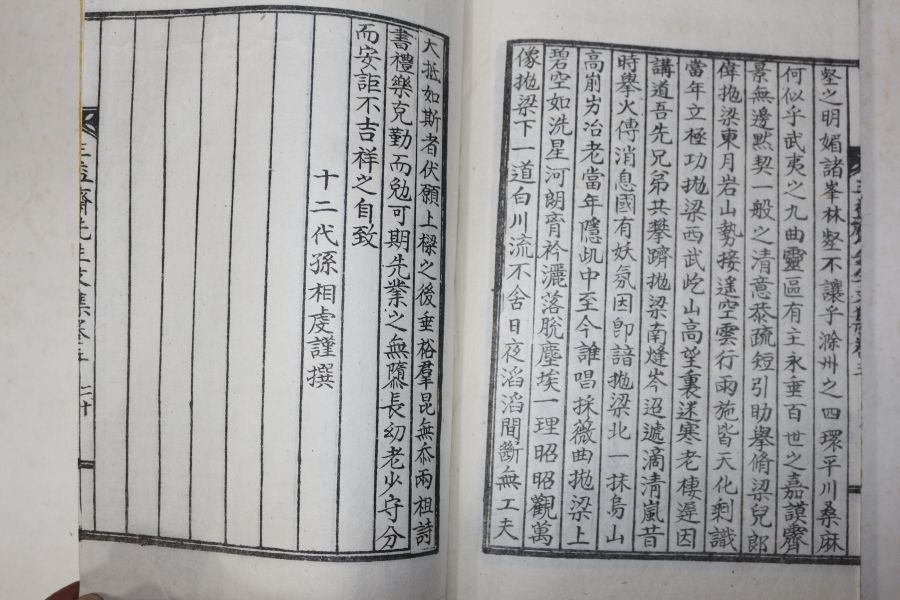 壑之明媚諸峯林壑不讓乎滁州之四環平川桑麻
何似乎武夷之九曲靈區有主永垂百世之嘉謨霽
景無邊黙契一般之清意恭疏短引助擧脩梁兒郞
偉拋梁東月岩山勢接遙空雲行雨施皆天化剩識
當年立極功拋梁西武屹山高望裏迷寒老棲遲因
講道吾先兄弟共攀躋拋梁南燧岑迢遞滴清嵐昔
時擧火傳消息國有妖氛因卽諳拋梁北一抹烏山
高崩屴冶老當年隱此中至今誰唱採薇曲拋梁上
碧空如洗星河朗胷衿灑落脫塵埃一理昭昭觀萬
像拋梁下一道白川流不舍日夜滔滔間斷無工夫
大抵如斯者伏願上樑之後垂裕羣昆無忝兩祖詩
書禮樂克勤而勉可期先業之無隳長幼老少守分
而安詎不吉祥之自致
十二代孫相虔謹撰
三益齋先生文集卷之五 二十